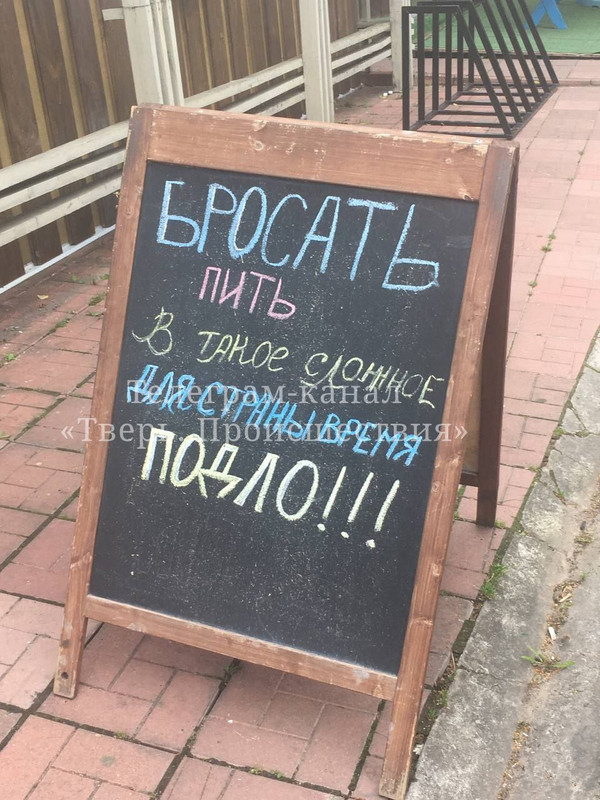 БРОСАТЬ
ПИТЬ
В ТАКОЕ СЛОЖНОЕ
Телеграм-канал
ДЛЯ СТРАНЫ ВРЕМЯ
«Тверь. Происшествия»
ПОДЛО!!!